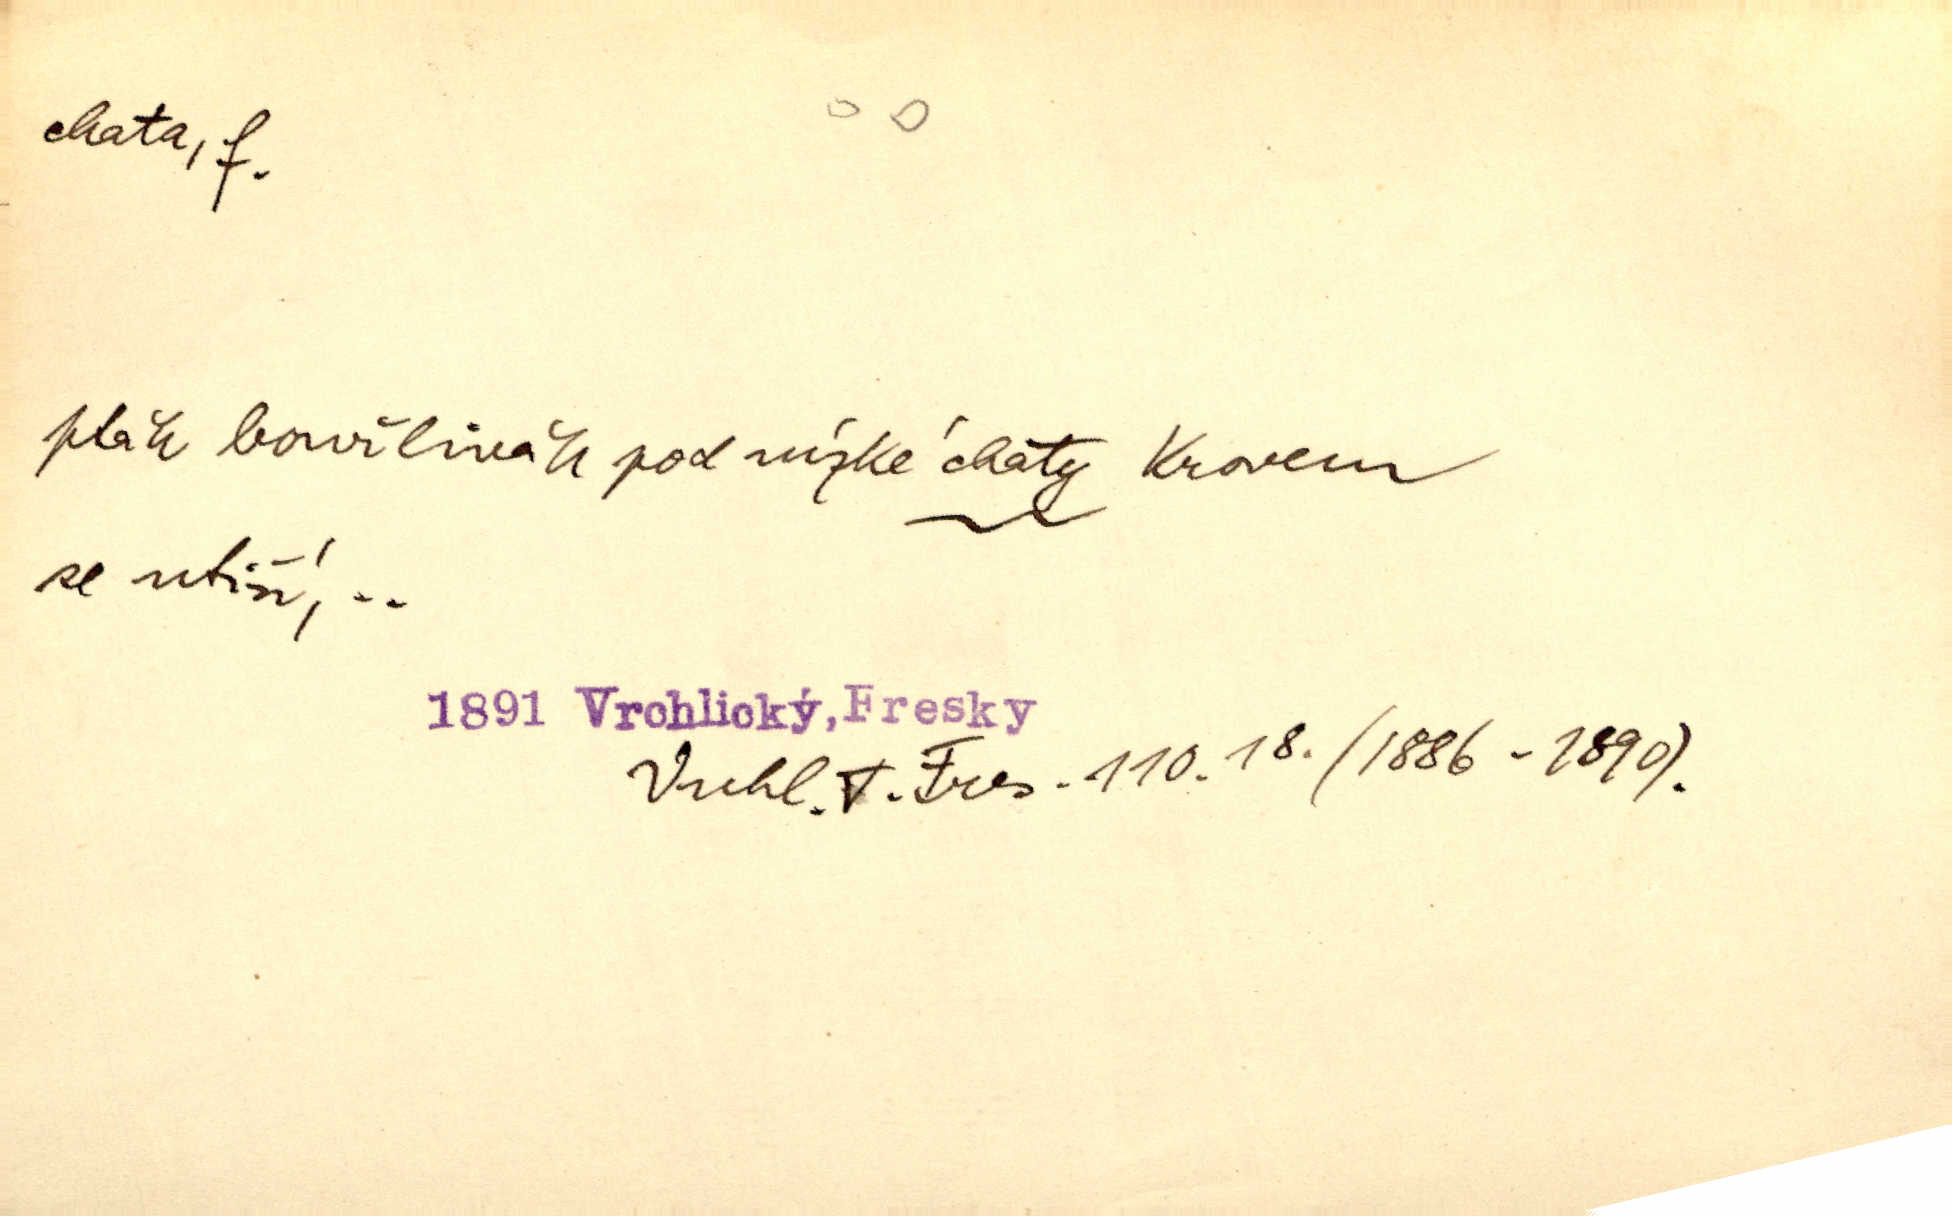 chata, f.
pták bouřlivák pod nízké chaty krovem
se utiší, ..
1891 Vrchlický, Fresky
Vrchl. F. Fres. 110. 18. (1886 - 1890).